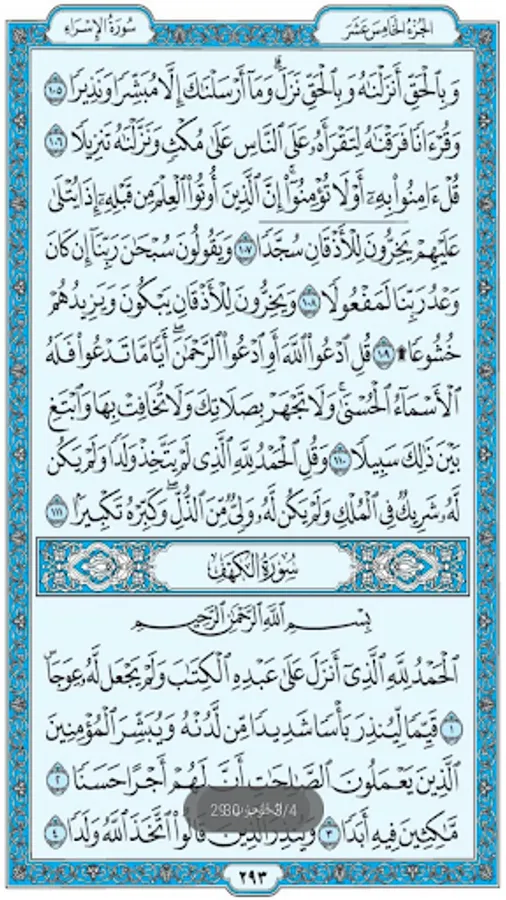 الجزء الخامس عشر
سورة الإسراء
وَبِالْحَقِّ أَنزَلْنَٰهُ وَبِالْحَقِّ نَزَلَ ۗ وَمَآ أَرْسَلْنَٰكَ إِلَّا مُبَشِّرًا وَنَذِيرًا ١٠٥
وَقُرْءَانًا فَرَقْنَٰهُ لِتَقْرَأَهُۥ عَلَى ٱلنَّاسِ عَلَىٰ مُكْثٍ وَنَزَّلْنَٰهُ تَنزِيلًا ١٠٦
قُلْ ءَامِنُوا۟ بِهِۦٓ أَوْ لَا تُؤْمِنُوٓا۟ ۚ إِنَّ ٱلَّذِينَ أُوتُوا۟ ٱلْعِلْمَ مِن قَبْلِهِۦٓ إِذَا يُتْلَىٰ
عَلَيْهِمْ يَخِرُّونَ لِلْأَذْقَانِ سُجَّدًا ١٠٧ وَيَقُولُونَ سُبْحَٰنَ رَبِّنَآ إِن كَانَ
وَعْدُ رَبِّنَا لَمَفْعُولًا ١٠٨ وَيَخِرُّونَ لِلْأَذْقَانِ يَبْكُونَ وَيَزِيدُهُمْ
خُشُوعًا ۩ ١٠٩ قُلِ ٱدْعُوا۟ ٱللَّهَ أَوِ ٱدْعُوا۟ ٱلرَّحْمَٰنَ ۖ أَيًّا مَّا تَدْعُوا۟ فَلَهُ
ٱلْأَسْمَآءُ ٱلْحُسْنَىٰ ۚ وَلَا تَجْهَرْ بِصَلَاتِكَ وَلَا تُخَافِتْ بِهَا وَٱبْتَغِ
بَيْنَ ذَٰلِكَ سَبِيلًا ١١٠ وَقُلِ ٱلْحَمْدُ لِلَّهِ ٱلَّذِى لَمْ يَتَّخِذْ وَلَدًا وَلَمْ يَكُن
لَّهُۥ شَرِيكٌ فِى ٱلْمُلْكِ وَلَمْ يَكُن لَّهُۥ وَلِىٌّ مِّنَ ٱلذُّلِّ ۖ وَكَبِّرْهُ تَكْبِيرًۢا ١١١
سورة الكهف
بِسْمِ ٱللَّهِ ٱلرَّحْمَٰنِ ٱلرَّحِيمِ
ٱلْحَمْدُ لِلَّهِ ٱلَّذِىٓ أَنزَلَ عَلَىٰ عَبْدِهِ ٱلْكِتَٰبَ وَلَمْ يَجْعَل لَّهُۥ عِوَجَا ۜ
١ قَيِّمًا لِّيُنذِرَ بَأْسًا شَدِيدًا مِّن لَّدُنْهُ وَيُبَشِّرَ ٱلْمُؤْمِنِينَ
ٱلَّذِينَ يَعْمَلُونَ ٱلصَّٰلِحَٰتِ أَنَّ لَهُمْ أَجْرًا حَسَنًا ٢
مَّٰكِثِينَ فِيهِ أَبَدًا ٣ وَيُنذِرَ ٱلَّذِينَ قَالُوا۟ ٱتَّخَذَ ٱللَّهُ وَلَدًا ٤
٢٩٣